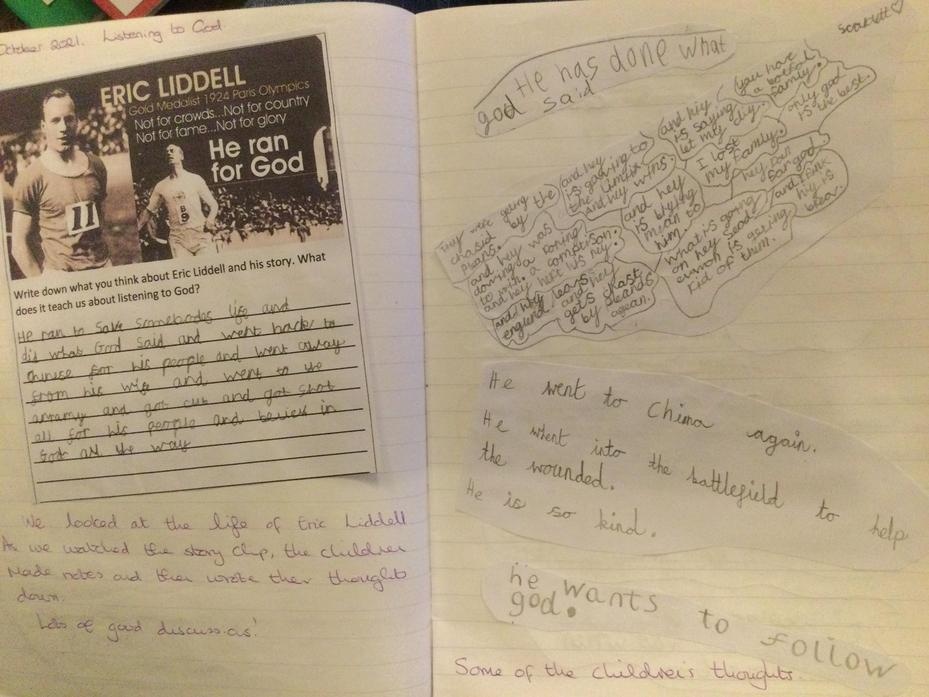 October 2021. Listening to God.
ERIC LIDDELL
Gold Medalist 1924 Paris Olympics
Not for crowds...Not for country
Not for fame...Not for glory
He ran
for God
11
Write down what you think about Eric Liddell and his story. What
does it teach us about listening to God?
He ran to save somebodes life and
did what God said and went back to
Chinese for his people and went away
from his wife and went to the
arramy and got cut and got shot
all for his people and beliefs in
God all the way
We looked at the life of Eric Liddell
As we watched the story clip, the children
made notes and then wrote their thoughts
down.
Lots of good discussions!
Scarlett
He has done what
god said
They were going
chasid by the
Pleans.
and hey was
doing a roning
to win a comptison.
and hey hert his hey
and hey lears
england and hey
gets chast
by pleands
agean.
and hey
is gowing to
the limdix
and hey wins.
and hey
is blying
mean to
him
and hey
is saying
let my diy.
I lost
my Family.
you have
a botafal
Family.
only god
is the best.
hey Dan
For god
and I fink
hiy is
brav.
what is going
on hey send
evriwon is gating
rid of them.
He went to China again.
He whent into the battlefield to help
the wounded.
He is so kind.
he wants to Follow
god.
Some of the children's thoughts.